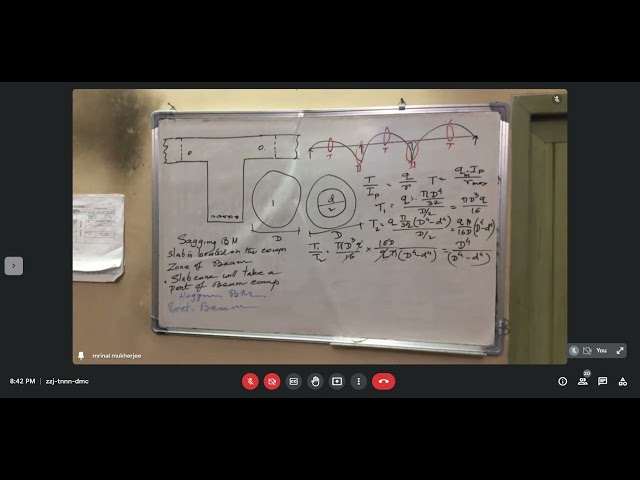 T T T
D
T/I_P = q/r T = q_m I_P/r_max
T₁ = q · (πD⁴/32)/(D/2) = πD³q/16
T₂ = q (π/32)(D⁴-d⁴)/(D/2) = qπ/16D (D⁴-d⁴)
T₁/T₂ = πD³q/16 × 16D/qπ(D⁴-d⁴) = D⁴/(D⁴-d⁴)
1
d
2
D D
Sagging BM
slab is located on the comp
Zone of Beam
. Slab can will take a
part of Beam comp
BM
Rect. Beam
mrinal mukherjee
You
8:42 PM | zzj-tnnn-dmc
20